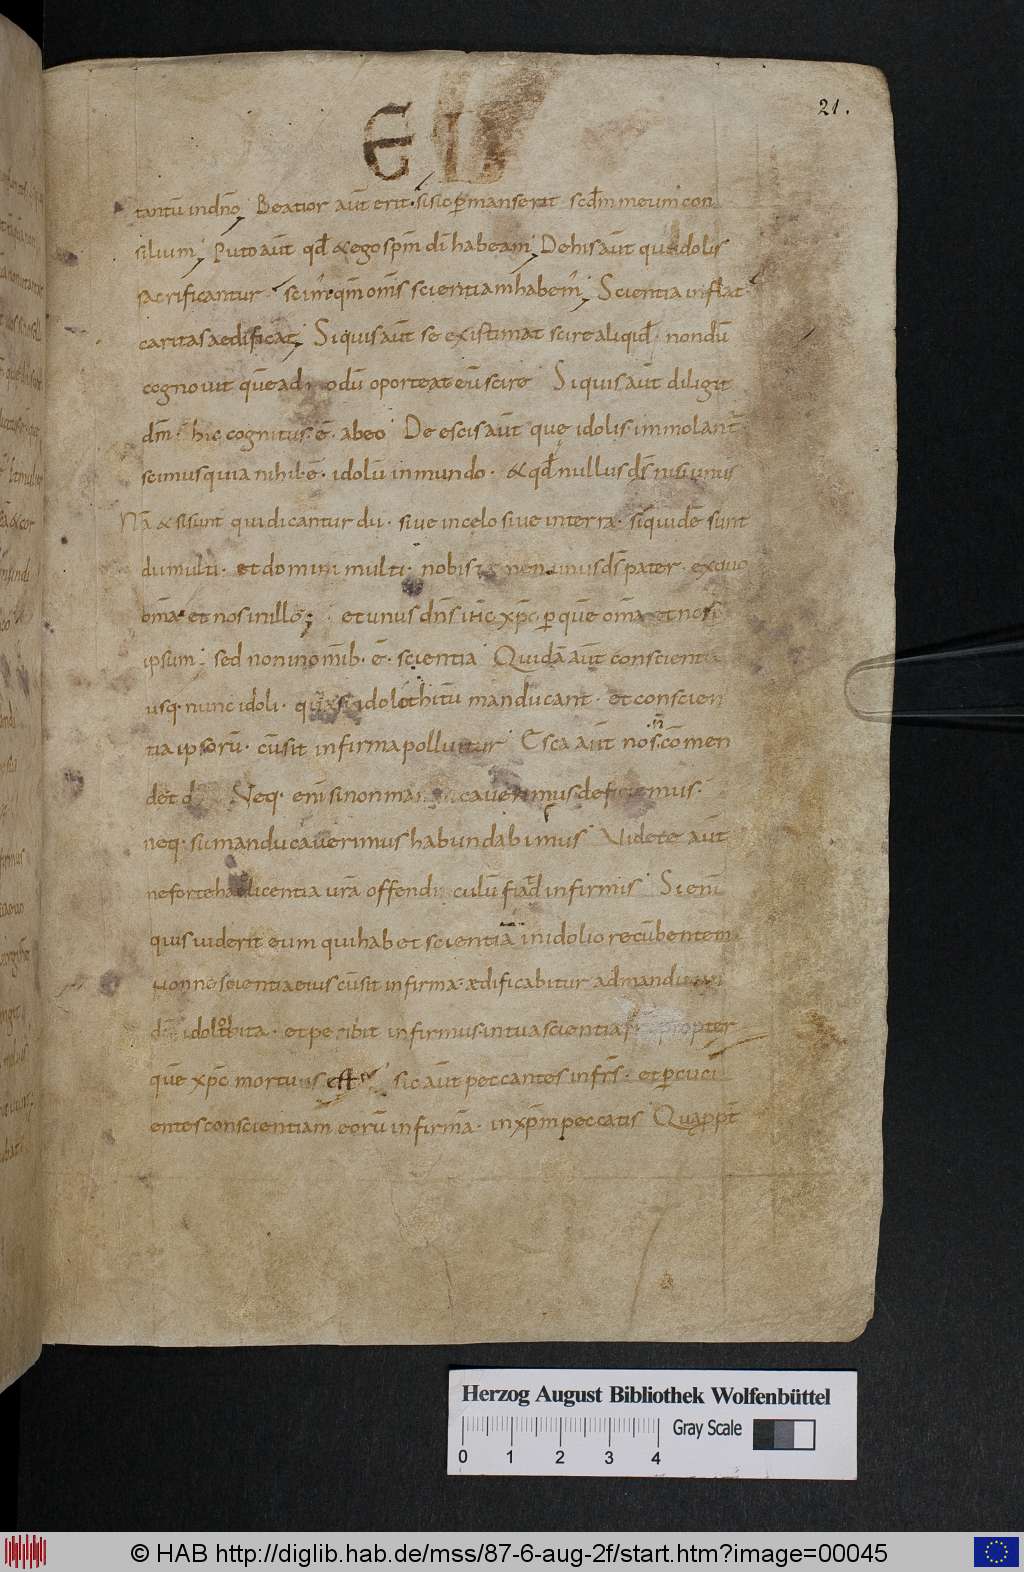 21.
tantū in dn̄o; Beatior aūt erit. si sic ꝑmanserit. scdm̄ meum con
silium; Puto aūt qd̄ & ego spm̄ dī habeam; De his aūt que idolis
sacrificantur. scim'. qm̄ om̄s scientiam habem'; Scientia inflat.
caritas aedificat; Si quis aūt se existimat scire aliqid̄. nondū
cognovit quē ad odū oporteat eū scire Si quis aūt diligit
dm̄. hic cognitus. ē. ab eo De escis aūt quę idolis immolant̄
scimus quia nihil. ē. idolū in mundo. & qd̄ nullus ds̄ nisi unus
Nā & si sunt qui dicantur dii. sive in celo sive in terra. siquidē sunt
dii multi. et domini multi. nobis unus ds̄ pater. ex quo
om̄a. et nos in illo; et unus dn̄s ih̄c xp̄c. ꝑ quē om̄a et nos
ipsum; sed non in om̄ib. ē. scientia Quidā aūt conscientia
usq. nunc idoli. idolothitū manducant. et conscien
tia ipsorū. cū sit infirma polluitur Esca aūt nos. n̄ cōmen
det d Neq. enī si non man caverimus deficiemus.
neq. si manducaverimus habundabimus Videte aūt
ne forte haec licentia vr̄a offendi culū fiad infirmis Si enī
quis viderit eum qui habet scientiā in idolio recūbentem
nonne scientia eius cū sit infirma. ædificabitur ad manducan
d idolothita. et peribit infirmus in tua scientia propter
quē xp̄c mortuus est sic aūt peccantes in fr̄s. et ꝑcuci
entes conscientiam eorū infirmā. in xp̄m peccatis Quapropt̄
Herzog August Bibliothek Wolfenbüttel
Gray Scale
0 1 2 3 4
© HAB http://diglib.hab.de/mss/87-6-aug-2f/start.htm?image=00045